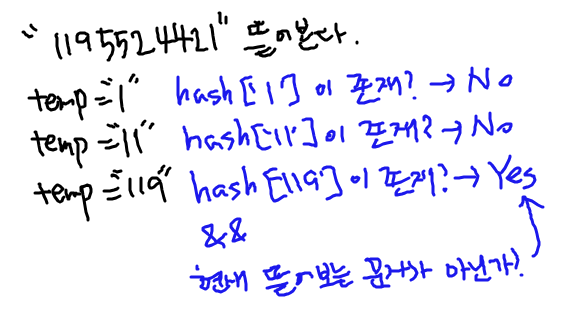 “1195524421” 뜯어본다.
temp = “1” hash['1'] 이 존재? → No
temp = “11” hash['11'] 이 존재? → No
temp = “119” hash['119'] 이 존재? → Yes
&&
현재 뜯어보는 문자가 아닌가?